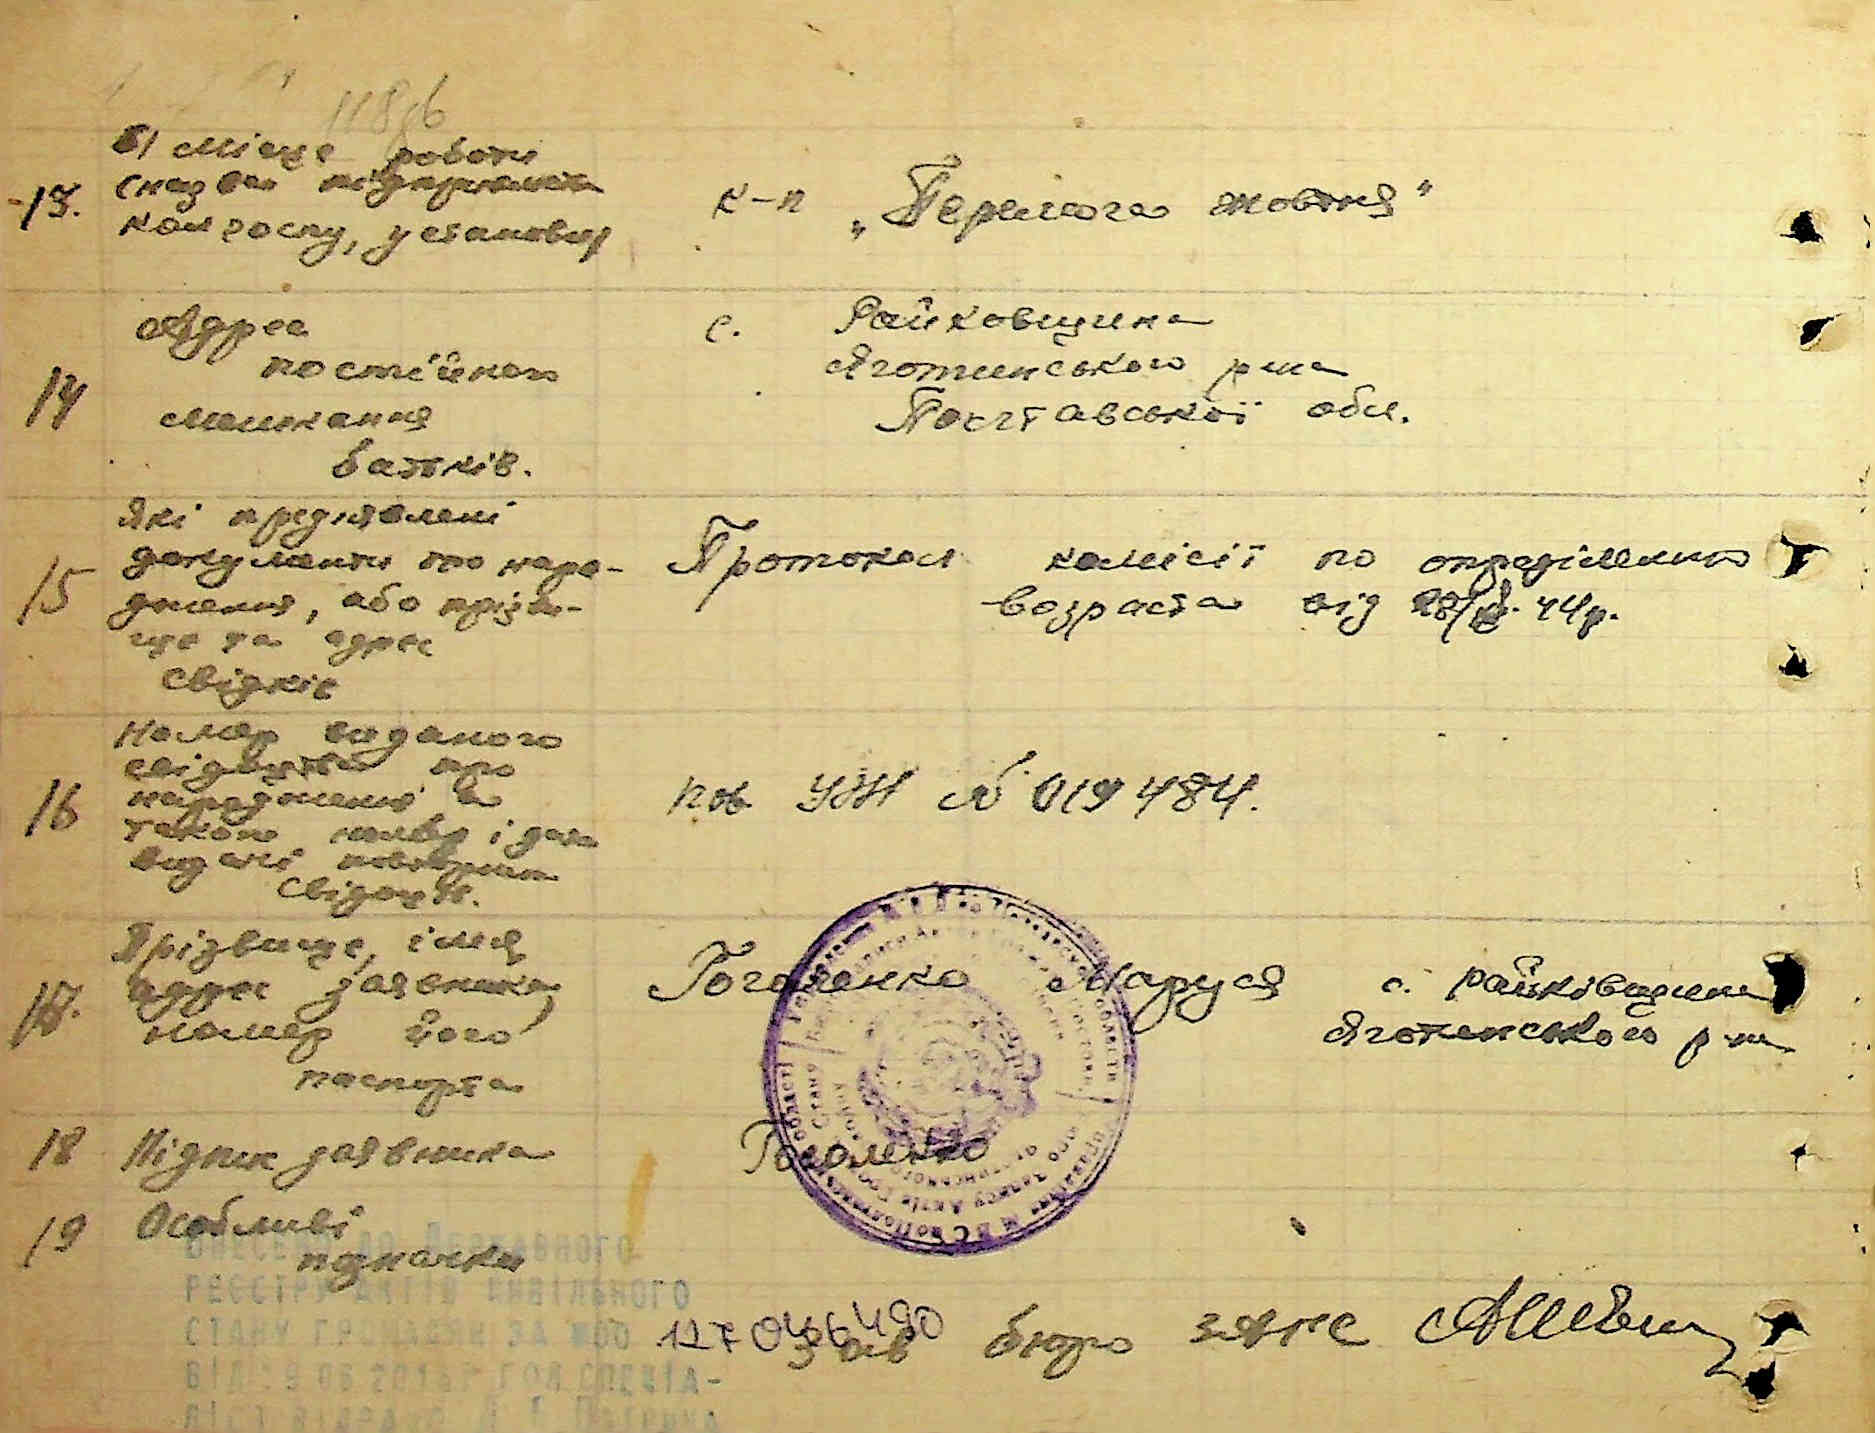 118 зб
13. б) місце роботи
(назва підприємства
колгоспу, установи
к-п „Перемога жовтня"
14 Адреса
постійного
мешкання
батьків.
с. Райковщина
Яготинського р-на
Полтавської обл.
15 Які предявлені
документи про наро-
дження, або прізви-
ще та адрес
свідків
Протокол комісії по определению
возраста від 28/ 44р.
16 Номер виданого
свідоцтва про
народження а
також номер і дата
видачі повторних
свідоцтв.
пов УЖ № 019484.
17. Прізвище, імя,
адрес заявника,
номер його
паспорта
Гоголенко Маруся с. Райківщина
Яготинського р-на
18 Підпис заявника
Гоголенко
19 Особливі
помітки
ВНЕСЕНО ДО ДЕРЖАВНОГО
РЕЄСТРУ АКТІВ ЦИВІЛЬНОГО
СТАНУ ГРОМАДЯН ЗА №00
127 046490
Зав бюро ЗАГС